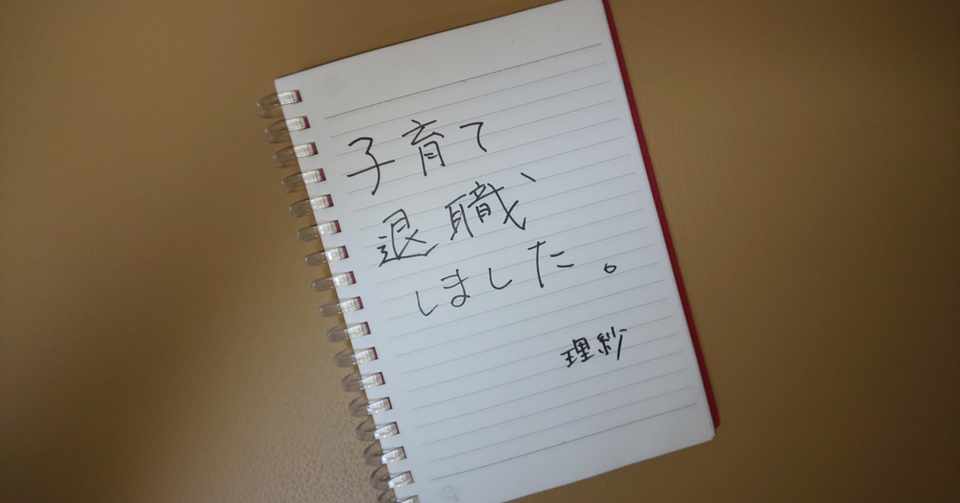 子育て
退職、
しました。
理紗